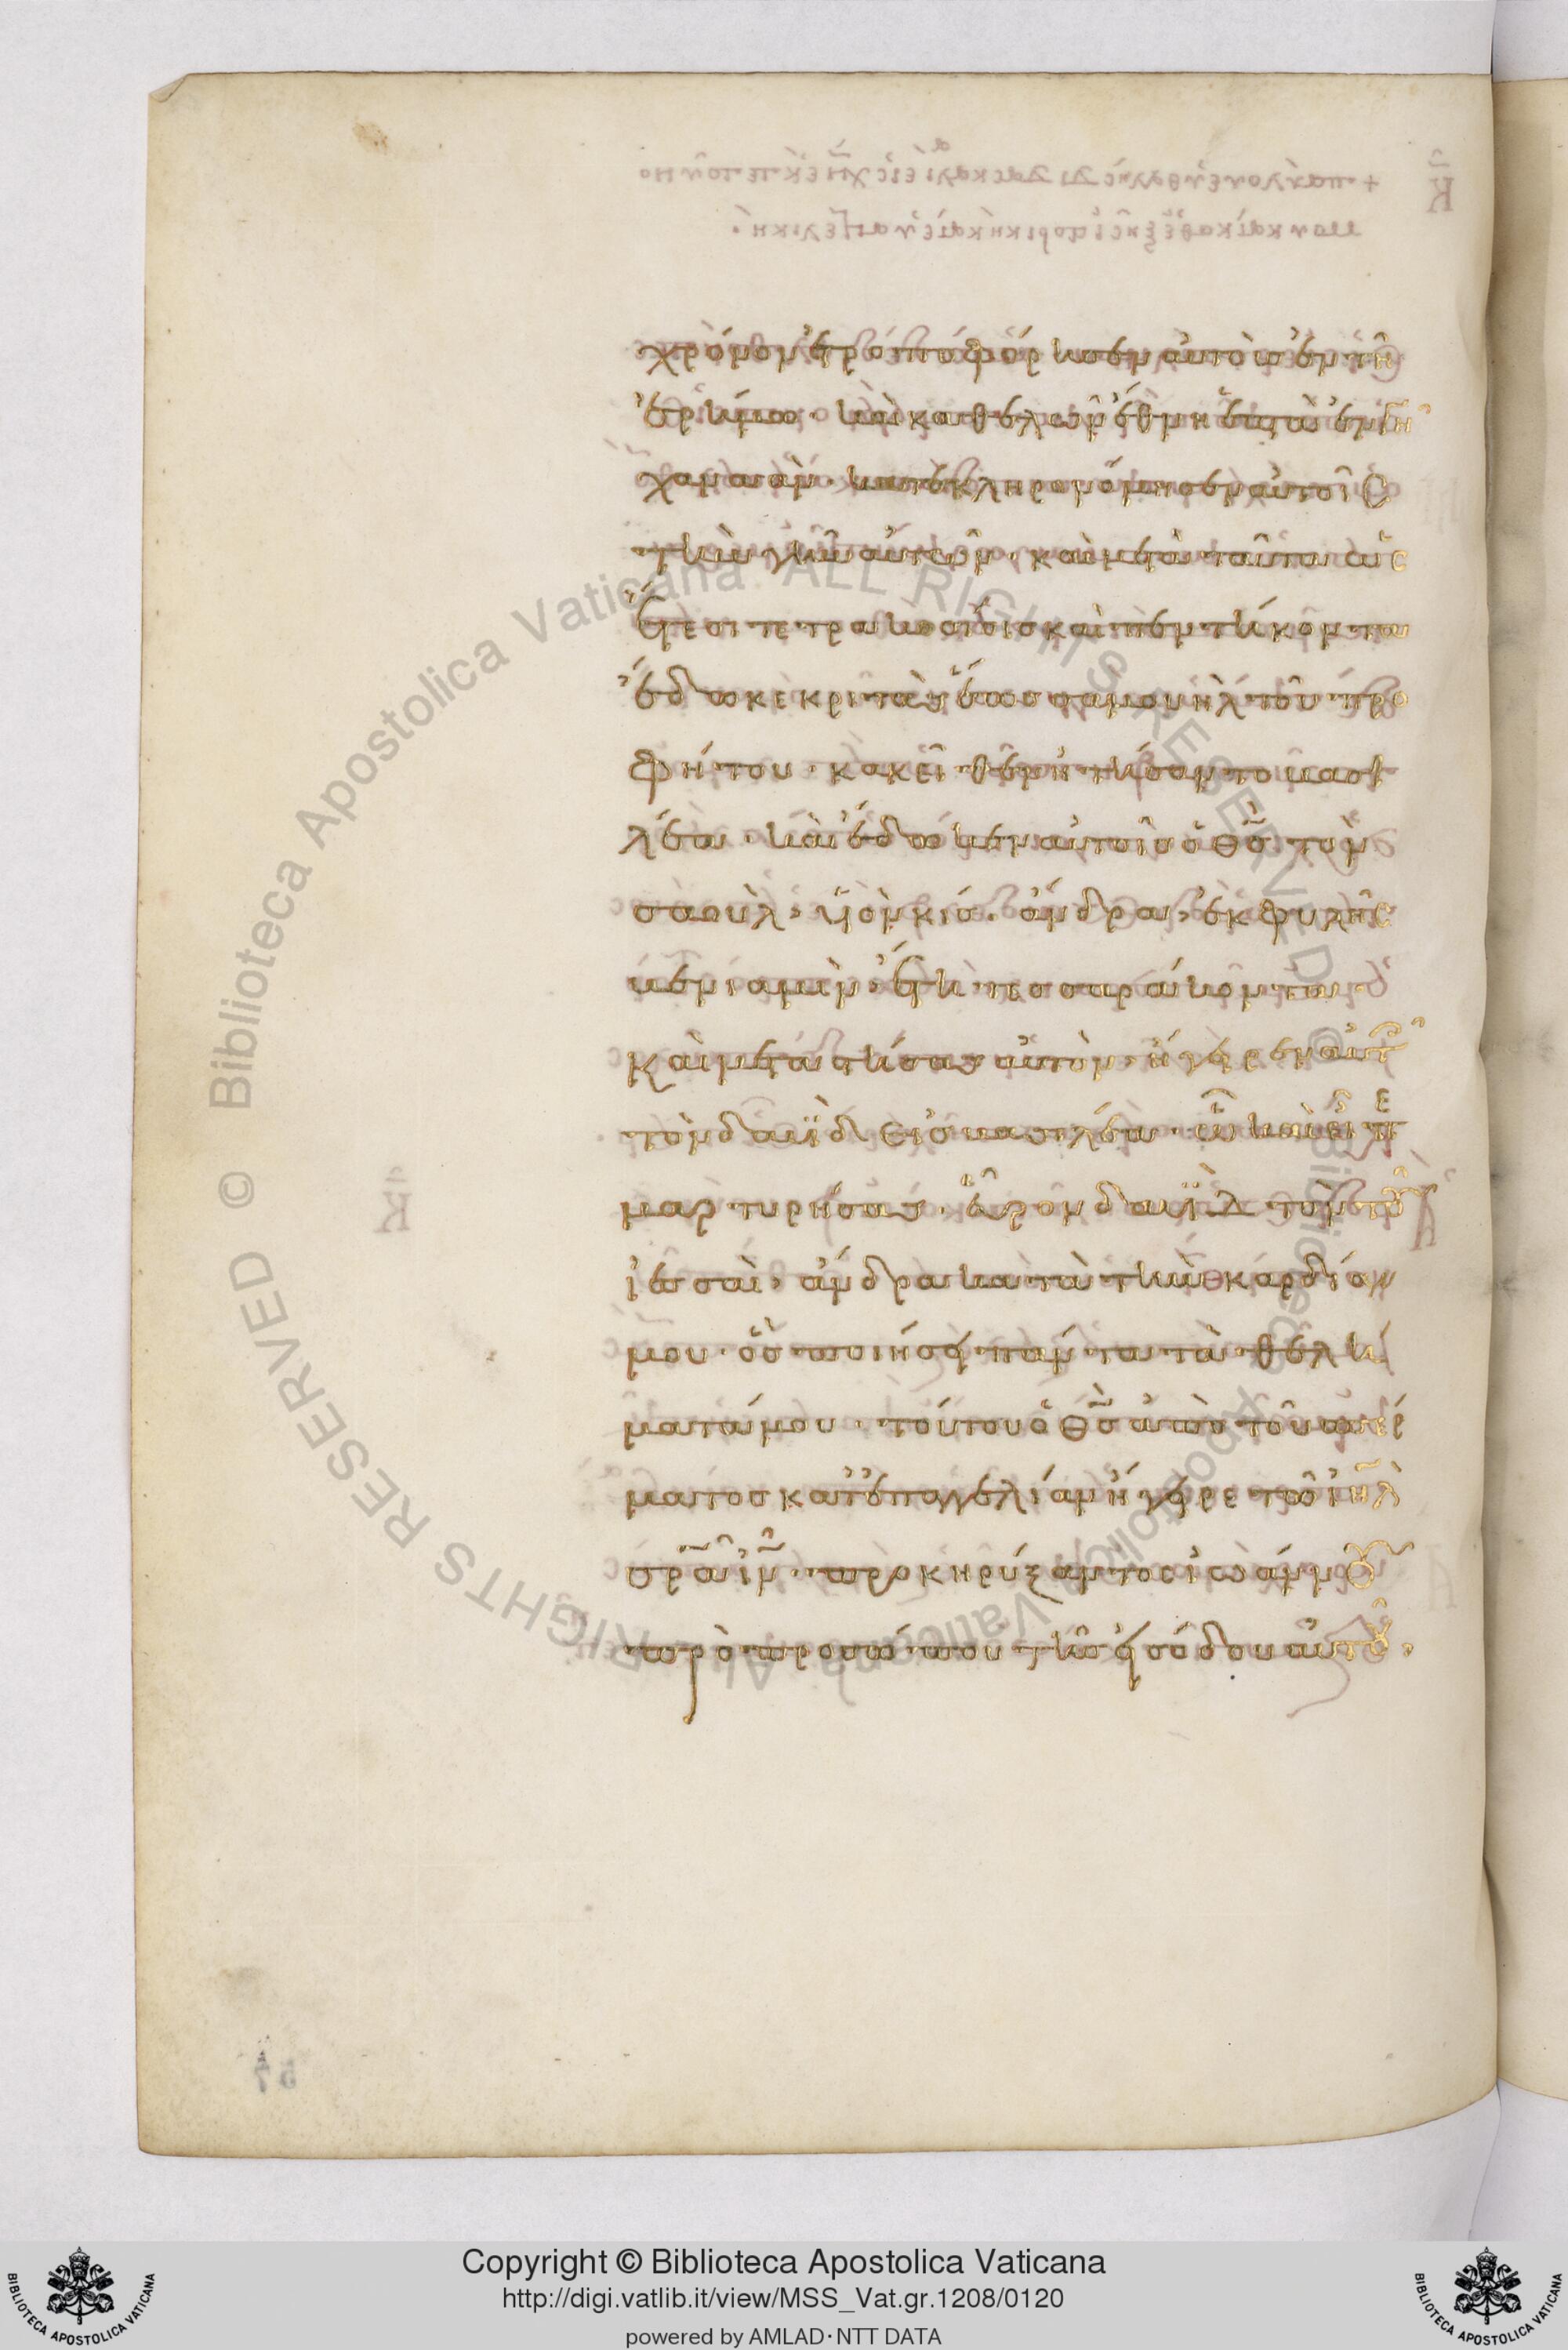 χρόνον ἐτροποφόρησεν αὐτοὺς ἐν τῆ
ἐρήμω· καὶ καθελὼν ἔθνη ἑπτὰ ἐν γῆ
χαναὰν· κατεκληρονόμησεν αὐτοῖς
τὴν γῆν αὐτῶν· καὶ μετὰ ταῦτα ὡς
ἔτεσι τετρακοσίοις καὶ πεντήκοντα
ἔδωκε κριτὰς ἕως σαμουὴλ τοῦ προ
φήτου· κἀκεῖθεν ἠτήσαντο βασι
λέα· καὶ ἔδωκεν αὐτοῖς ὁ θς τὸν
σαουὴλ, υἱὸν κίς· ἄνδρα, ἐκ φυλῆς
βενιαμὶν, ἔτη τεσσαράκοντα·
καὶ μεταστήσας αὐτὸν, ἤγειρεν αὐτ
τὸν δαυῒδ εἰς βασιλέα· ὧ καὶ εἶπε
μαρτυρήσας· εὗρον δαυῒδ τὸν τοῦ
ἰεσσαὶ, ἄνδρα κατὰ τὴν καρδίαν
μου· ὃς ποιήσει πάντα τὰ θελή
ματά μου· τούτου ὁ θς ἀπὸ τοῦ σπέρ
ματος κατ' ἐπαγγελίαν ἤγειρε τῶ ἰηλ
σρα ιν· προκηρύξαντος ἰωάννου
πρὸ προσώπου τῆς εἰσόδου αὐτοῦ·
Copyright © Biblioteca Apostolica Vaticana
http://digi.vatlib.it/view/MSS_Vat.gr.1208/0120
powered by AMLAD·NTT DATA
BIBLIOTECA APOSTOLICA VATICANA
BIBLIOTECA APOSTOLICA VATICANA
Biblioteca Apostolica Vaticana ALL RIGHTS RESERVED ©
Biblioteca Apostolica Vaticana ALL RIGHTS RESERVED ©